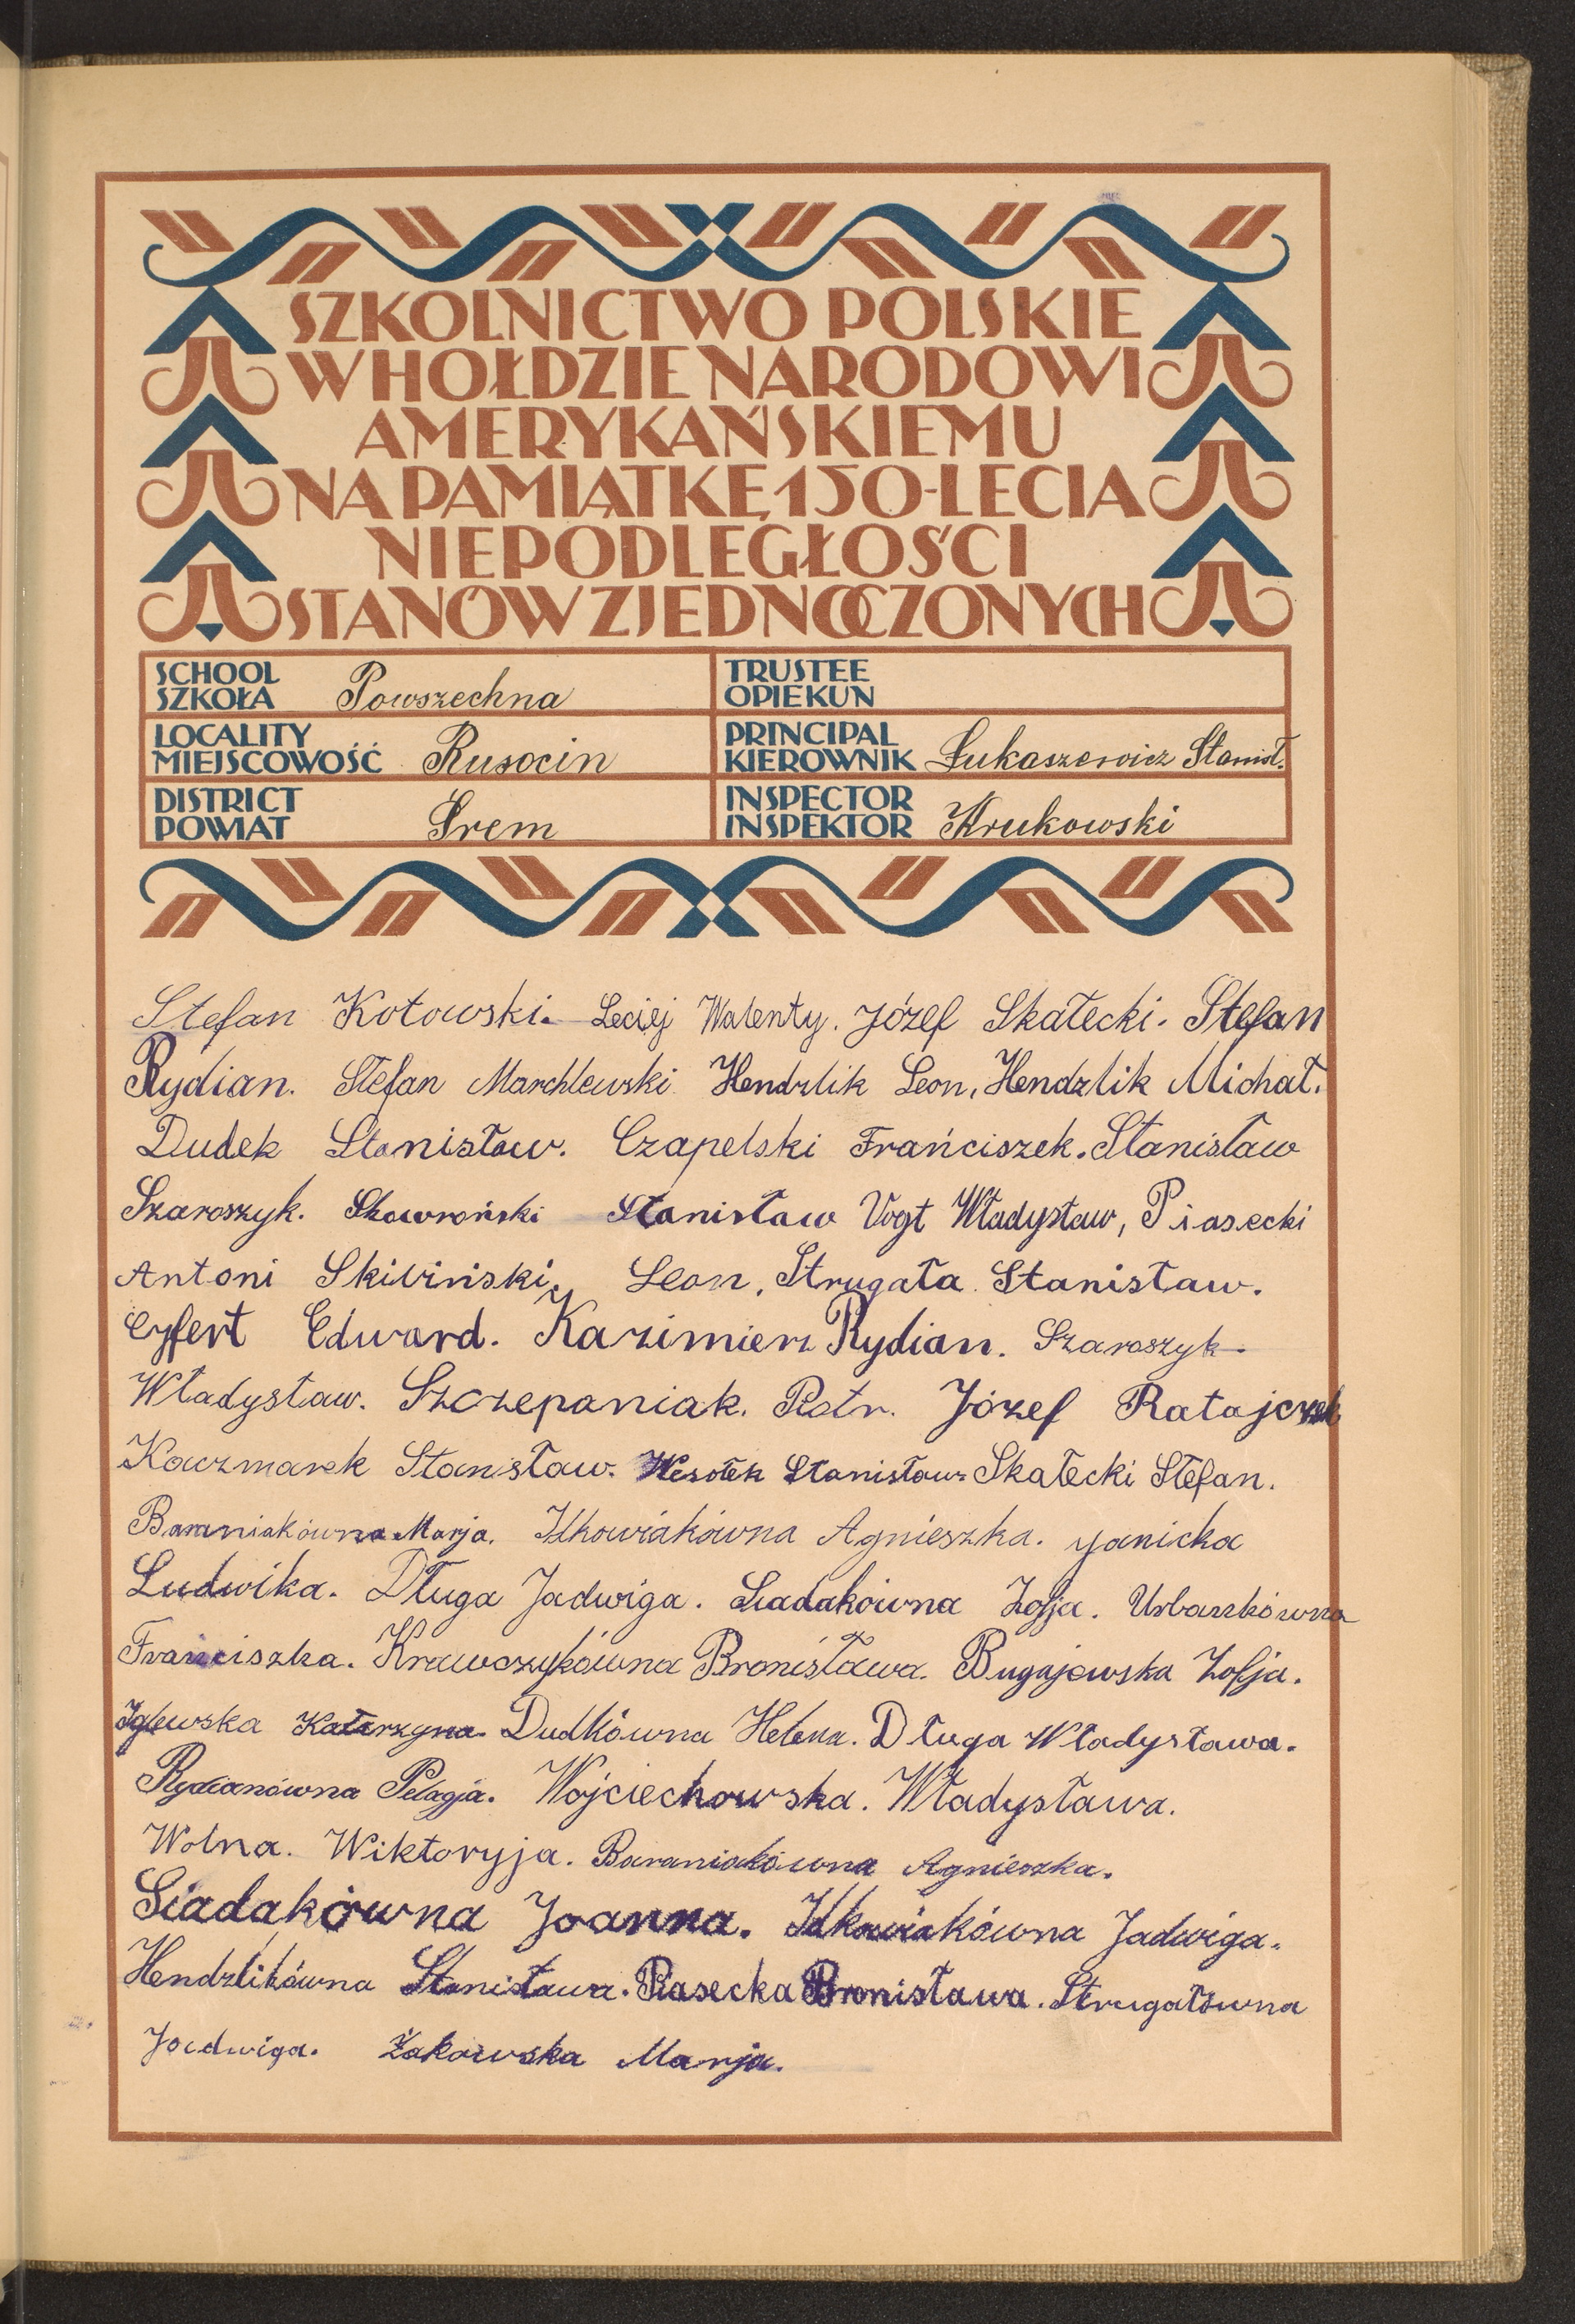 SZKOLNICTWO POLSKIE
W HOŁDZIE NARODOWI
AMERYKAŃSKIEMU
NA PAMIĄTKĘ 150-LECIA
NIEPODLEGŁOŚCI
STANÓW ZJEDNOCZONYCH
SCHOOL
SZKOŁA Powszechna
TRUSTEE
OPIEKUN
LOCALITY
MIEJSCOWOŚĆ Rusocin
PRINCIPAL
KIEROWNIK Łukaszewicz Stanisł.
DISTRICT
POWIAT Śrem
INSPECTOR
INSPEKTOR Krukowski
Stefan Kotowski. Leciej Walenty. Józef Skałecki. Stefan
Rydian. Stefan Marchlewski Hendzlik Leon, Hendzlik Michał.
Dudek Stanisław. Czapelski Frańciszek. Stanisław
Szaroszyk. Skowroński Stanisław Vogt Władysław, Piasecki
Antoni Skibiński, Leon, Strugała Stanisław.
Cyfert Edward. Kazimierz Rydian. Szaroszyk.
Władysław. Szczepaniak. Piotr. Józef Ratajczak
Kaczmarek Stanisław. Wesołek Stanisław. Skałecki Stefan.
Baraniakówna Marja. Ilkowiakówna Agnieszka. Janicka
Ludwika. Długa Jadwiga. Siadakówna Zofja. Urbankówna
Franciszka. Krawczykówna Bronisława. Bugajewska Zofja.
Iglewska Katarzyna. Dudkówna Helena. Długa Władysława.
Rydianówna Pelagja. Wojciechowska. Władysława.
Wolna. Wiktoryja. Baraniakówna Agnieszka.
Siadakówna Joanna. Ilkowiakówna Jadwiga.
Hendzlikówna Stanisława. Piasecka Bronisława. Strugałówna
Jadwiga. Żakowska Marja.